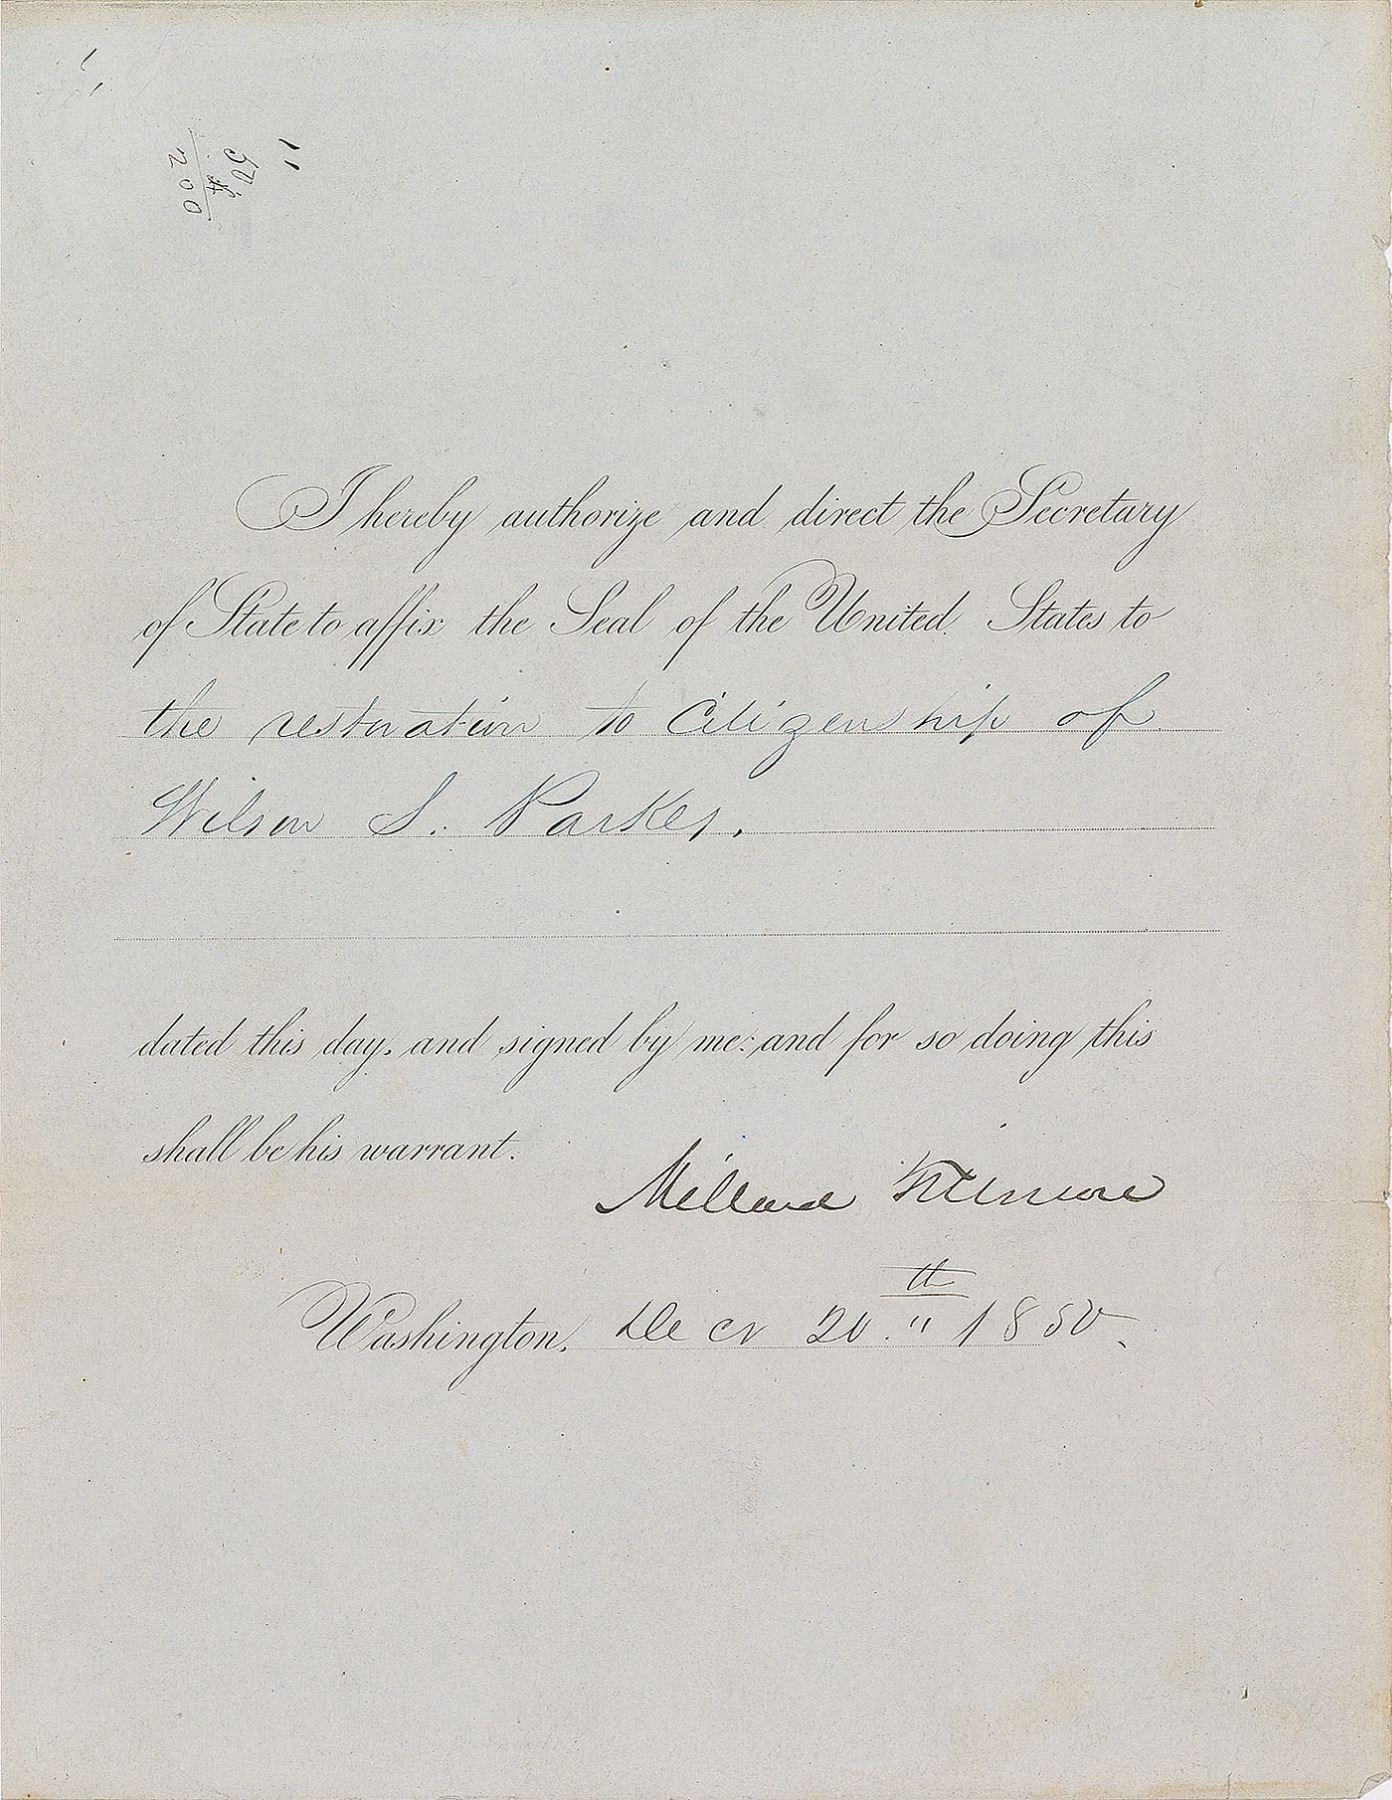 50
4
200
I hereby authorize and direct the Secretary
of State to affix the Seal of the United States to
the restoration to Citizenship of
Wilson S. Parker.
dated this day, and signed by me: and for so doing this
shall be his warrant.
Millard Fillmore
Washington, Decr 20th 1850.